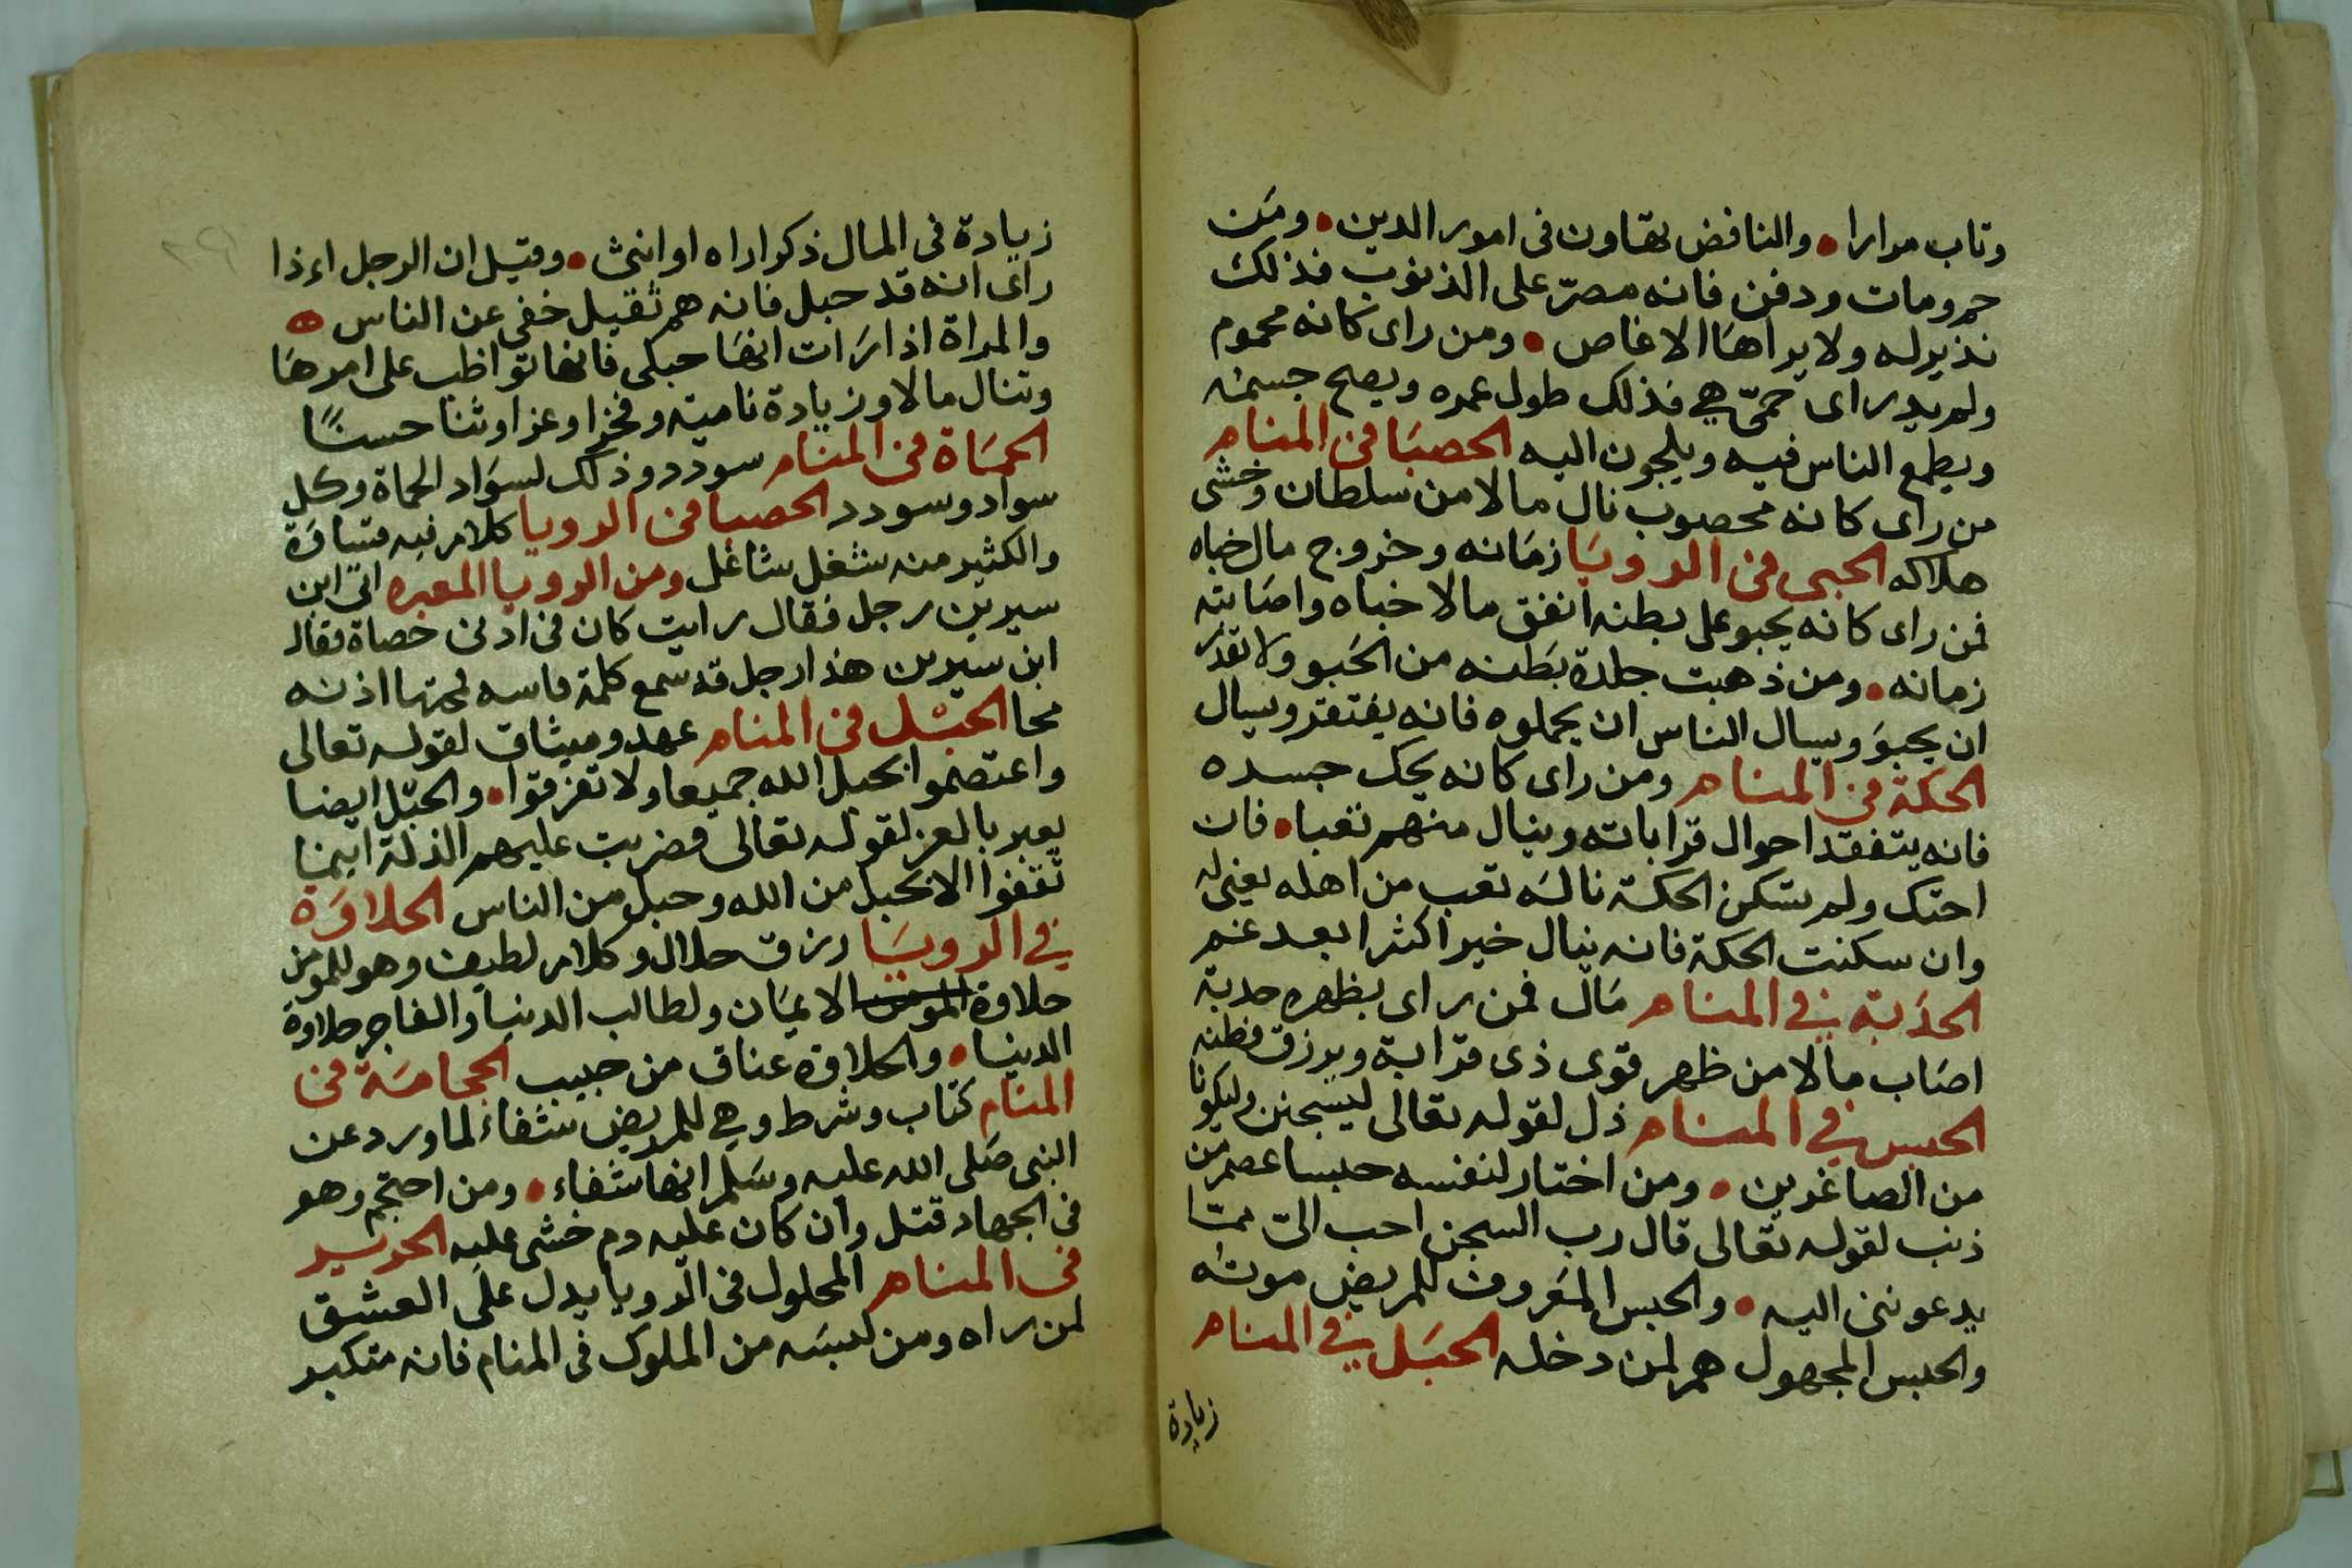 وتاب مرارا • والنافض تهاون فى امور الدين • ومن
حم ومات ودفن فانه مصرّ على الذنوب فذلك
نذير له ولا يراها الا عاص • ومن راى كانه محموم
ولم يدر اى حمىّ هي فذلك طول عمره ويصح جسمه
ويطمع الناس فيه ويلجون اليه الحصبا فى المنام
من راى كانه محصوب نال مالا من سلطان وخشى
هلاكه الحبى فى الرويا زمانه وخروج مال خباه
فمن راى كانه يحبو على بطنه انفق مالا خباه واصابته
زمانه • ومن ذهبت جلدة بطنه من الحبو ولا تقدر
ان يحبو ويسال الناس ان يحملوه فانه يفتقر ويسال
الحكة فى المنام ومن راى كانه يحك جسده
فانه يتفقد احوال قراباته وينال منهم تعبا • فان
احتك ولم تسكن الحكة ناله تعب من اهله يعنى له
وان سكنت الحكة فانه ينال خيرا كثرا بعد غم
الحدبة في المنام مال فمن راى بظهره حدبة
اصاب مالا من ظهر قوى ذى قرابة ويرزق فطنه
الحبس في المنام ذل لقوله تعالى ليسجنن وليكونا
من الصاغرين • ومن اختار لنفسه حبسا عصم من
ذنب لقوله تعالى قال رب السجن احب الىّ مما
يدعوننى اليه • والحبس المعروف للمريض موته
والحبس المجهول هم لمن دخله الحبل في المنام
زيادة
زيادة فى المال ذكرا راه او انثى • وقيل ان الرجل اءذا
راى انه قد حبل فانه هم ثقيل خفى عن الناس
والمراة اذا رات انها حبلى فانها تواظب على امرها
وتنال مالا وزيادة ناميه وفخرا وعزا وثنا حسنًا
الحماة فى المنام سودد وذلك لسواد الحماة وكل
سواد وسودد الحصبا فى الرويا كلام فيه قساوة
والكثير منه شغل شاغل ومن الرويا المعبره اتى ابن
سيرين رجل فقال رايت كان فى اذنى حصاة فقال
ابن سيرين هذا رجل قد سمع كلمة قاسه لمجتها اذنه
محا الحبل فى المنام عهد وميثاق لقوله تعالى
واعتصموا بحبل الله جميعا ولا تفرقوا • والحبل ايضا
يعبر بالعز لقوله تعالى وضربت عليهم الذلة اينما
ثقفوا الا بحبل من الله وحبل من الناس الحلاوة
في الرويا رزق حلال وكلام لطيف وهو للمومن
حلاوة المومن الايمان ولطالب الدنيا والفاجر حلاوة
الدنيا • والحلاوة عناق من حبيب الحجامة فى
المنام كتاب وشرط وهي للمريض شفاء لما ورد عن
النبى صلى الله عليه وسلم انها شفاء • ومن احتجم وهو
فى الجهاد قتل وان كان عليه دم خشى عليه الحرير
فى المنام المحلول فى الرويا يدل على العشق
لمن راه ومن لبسه من الملوك فى المنام فانه متكبر